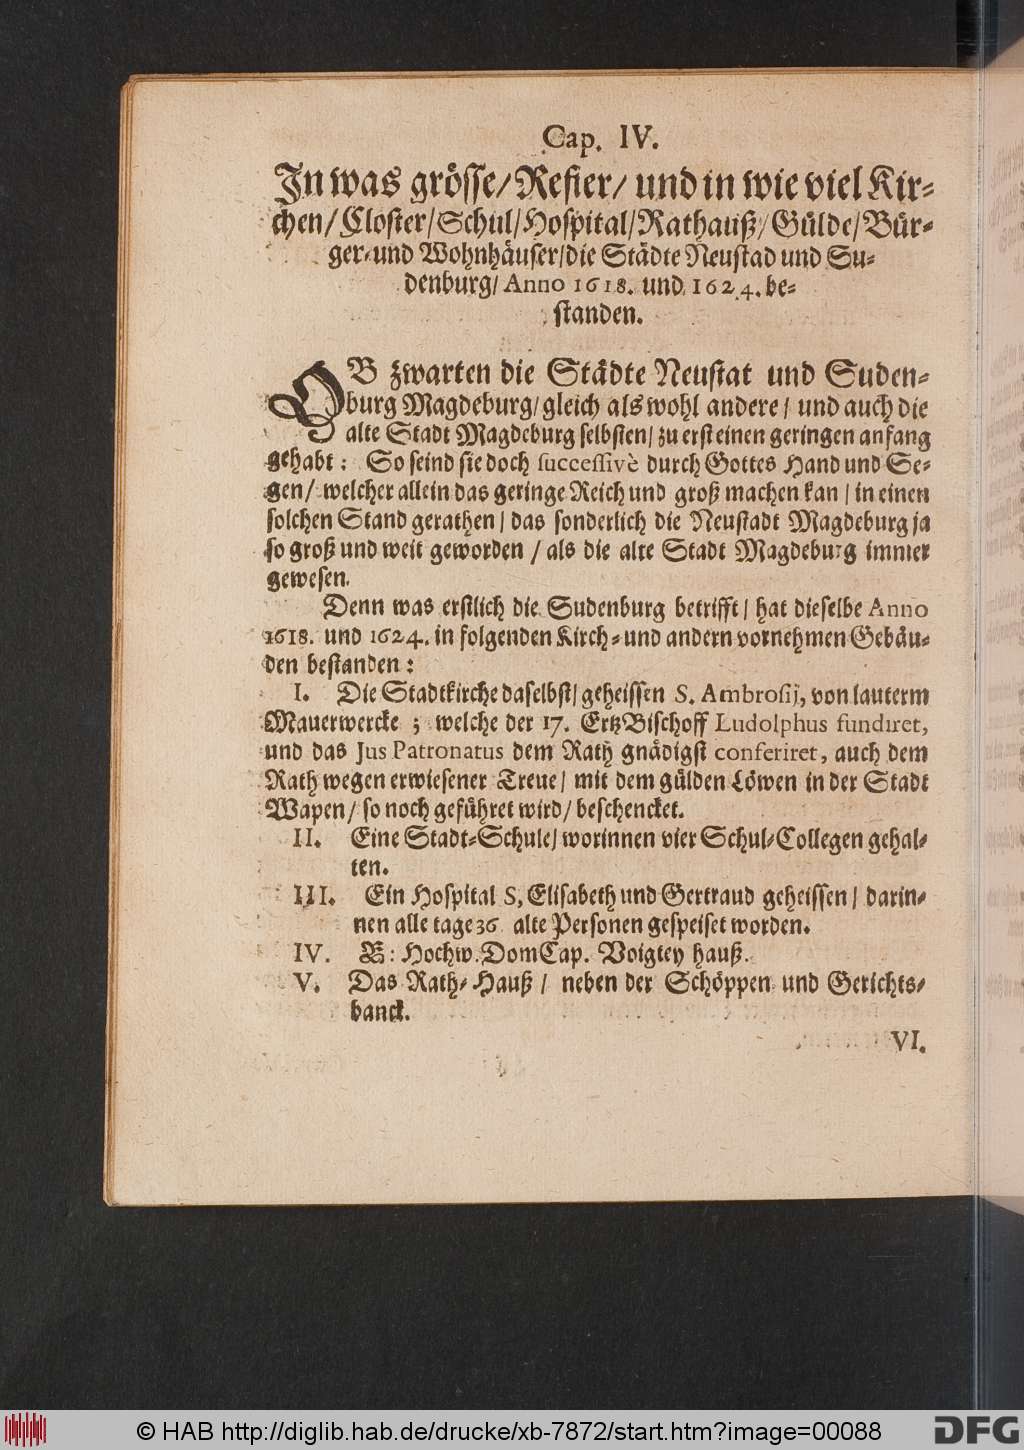 Cap. IV.
In was grösse/ Refier/ und in wie viel Kir-
chen/ Closter/ Schul/ Hospital/ Rathauß/ Gülde/ Bür-
ger- und Wohnhäuser/ die Städte Neustad und Su-
denburg/ Anno 1618. und 1624. be-
standen.
OB zwarten die Städte Neustat und Suden-
burg Magdeburg/ gleich als wohl andere/ und auch die
alte Stadt Magdeburg selbsten/ zu erst einen geringen anfang
gehabt: So seind sie doch successivè durch Gottes Hand und Se-
gen/ welcher allein das geringe Reich und groß machen kan/ in einen
solchen Stand gerathen/ das sonderlich die Neustadt Magdeburg ja
so groß und weit geworden/ als die alte Stadt Magdeburg immer
gewesen.
Denn was erstlich die Sudenburg betrifft/ hat dieselbe Anno
1618. und 1624. in folgenden Kirch- und andern vornehmen Gebäu-
den bestanden:
I. Die Stadtkirche daselbst/ geheissen S. Ambrosij, von lauterm
Mauerwercke; welche der 17. ErtzBischoff Ludolphus fundiret,
und das Jus Patronatus dem Rath gnädigst conferiret, auch dem
Rath wegen erwiesener Treue/ mit dem gülden Löwen in der Stadt
Wapen/ so noch geführet wird/ beschencket.
II. Eine Stadt-Schule/ worinnen vier Schul-Collegen gehal-
ten.
III. Ein Hospital S. Elisabeth und Gertraud geheissen/ darin-
nen alle tage 36 alte Personen gespeiset worden.
IV. E: Hochw. DomCap. Voigtey hauß.
V. Das Rath-Hauß/ neben der Schöppen und Gerichts-
banck.
VI.
© HAB http://diglib.hab.de/drucke/xb-7872/start.htm?image=00088
DFG